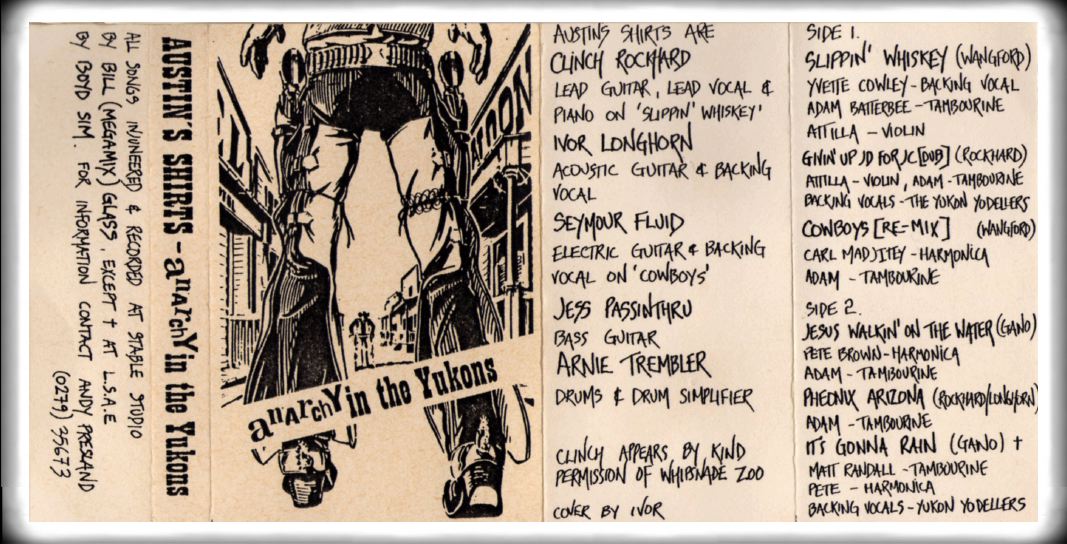 ALL SONGS INJUNEERED & RECORDED AT STABLE STUDIO
BY BILL (MEGAMIX) GLASS, EXCEPT † AT L.S.A.E
BY BOYD SIM. FOR INFORMATION CONTACT ANDY PRESLAND
(0279) 35673
AUSTIN'S SHIRTS - anarchy in the Yukons
anarchy in the Yukons
AUSTIN'S SHIRTS ARE
CLINCH ROCKHARD
LEAD GUITAR, LEAD VOCAL &
PIANO ON 'SLIPPIN' WHISKEY'
IVOR LONGHORN
ACOUSTIC GUITAR & BACKING
VOCAL
SEYMOUR FLUID
ELECTRIC GUITAR & BACKING
VOCAL ON 'COWBOYS'
JESS PASSINTHRU
BASS GUITAR
ARNIE TREMBLER
DRUMS & DRUM SIMPLIFIER
CLINCH APPEARS BY KIND
PERMISSION OF WHIPSNADE ZOO
COVER BY IVOR
SIDE 1.
SLIPPIN' WHISKEY (WANGFORD)
YVETTE COWLEY - BACKING VOCAL
ADAM BATTERBEE - TAMBOURINE
ATTILLA - VIOLIN
GIVIN' UP JD FOR JC [DUB] (ROCKHARD)
ATTILLA - VIOLIN, ADAM - TAMBOURINE
BACKING VOCALS - THE YUKON YODELLERS
COWBOYS [RE-MIX] (WANGFORD)
CARL MADJITEY - HARMONICA
ADAM - TAMBOURINE
SIDE 2.
JESUS WALKIN' ON THE WATER (GANO)
PETE BROWN - HARMONICA
ADAM - TAMBOURINE
PHEONIX ARIZONA (ROCKHARD/LONGHORN)
ADAM - TAMBOURINE
IT'S GONNA RAIN (GANO) †
MATT RANDALL - TAMBOURINE
PETE - HARMONICA
BACKING VOCALS - YUKON YODELLERS